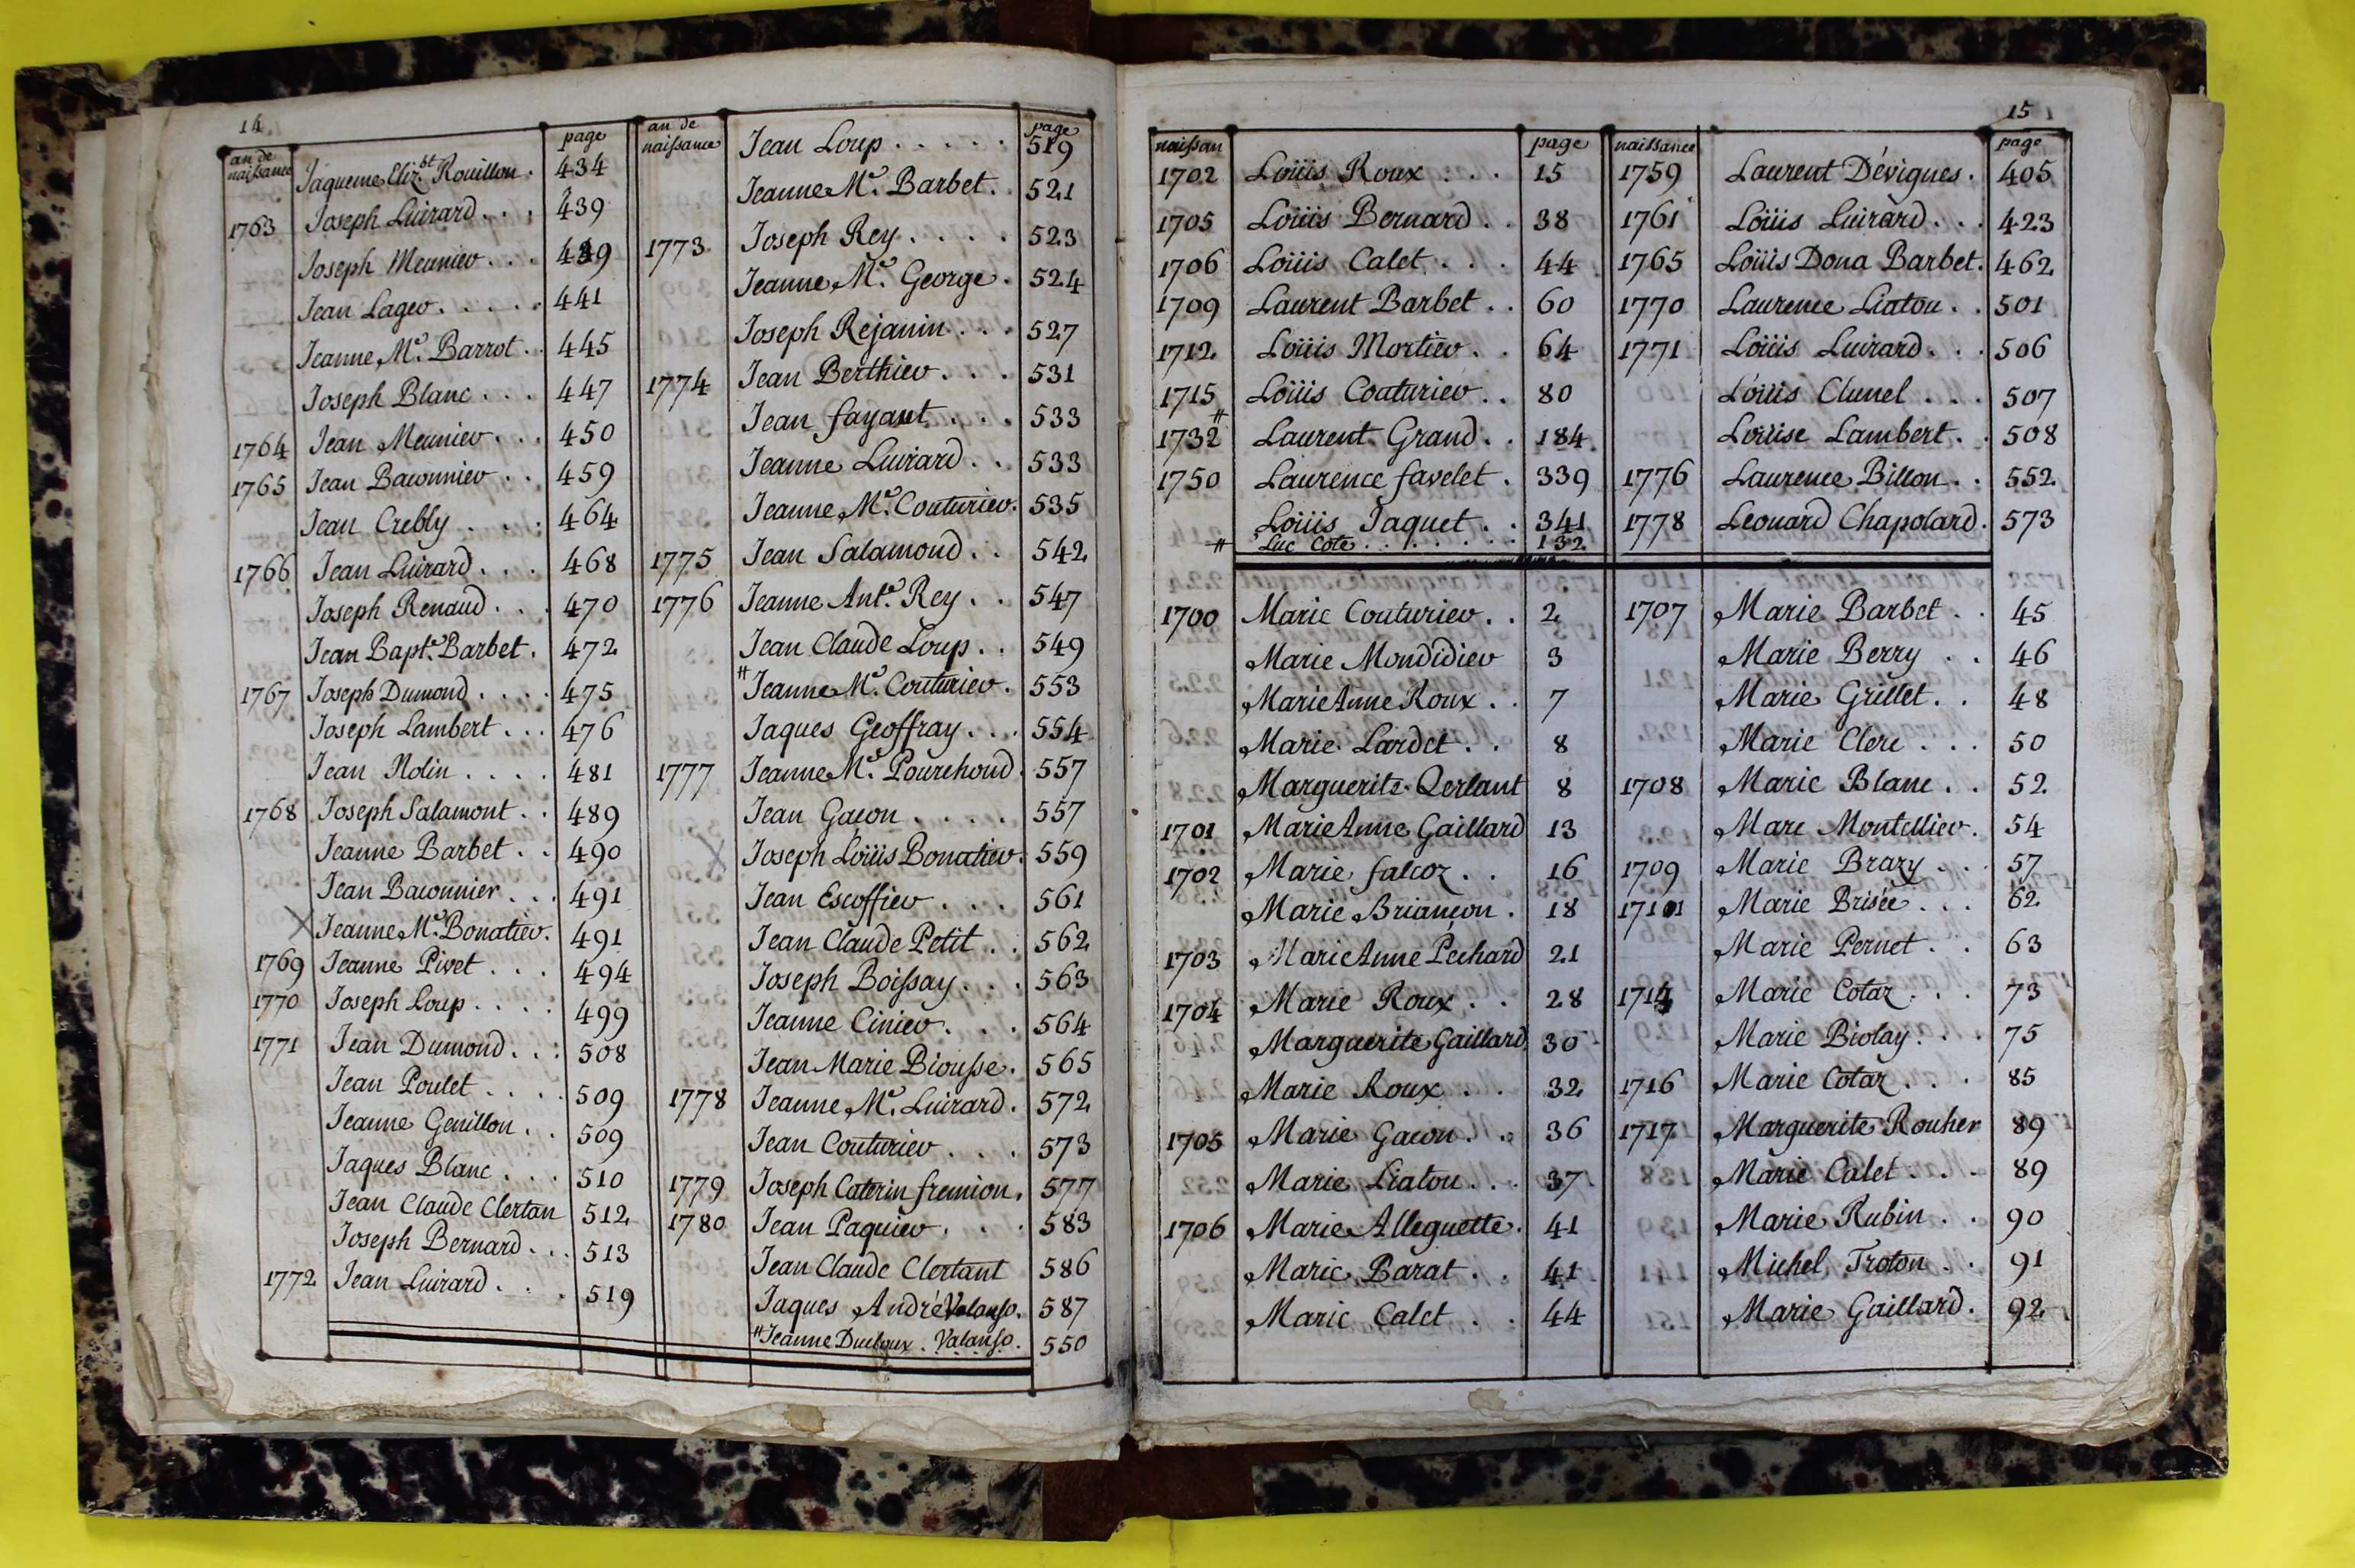 14
an de naissance page
Jaqueme Eliz.bt Rouillon . 434
1763 Joseph Luirard . . . 439
Joseph Meunier . . . 439
Jean Lager . . . . . 441
Jeanne M.e Barrot . . 445
Joseph Blanc . . . 447
1764 Jean Meunier . . . 450
1765 Jean Baconnier . . 459
Jean Crebly . . . . 464
1766 Jean Luirard . . . 468
Joseph Renaud . . . 470
Jean Bapt.e Barbet . 472
1767 Joseph Dumond . . . . 475
Joseph Lambert . . . 476
Jean Nolin . . . . 481
1768 Joseph Salamont . . 489
Jeanne Barbet . . 490
Jean Baconnier . . . 491
X Jeanne M.e Bonatier . 491
1769 Jeanne Pivet . . . 494
1770 Joseph Loup . . . . 499
1771 Jean Dumond . . . 508
Jean Poulet . . . . 509
Jeanne Genillon . . 509
Jaques Blanc . . . 510
Jean Claude Clertan 512
Joseph Bernard . . . 513
1772 Jean Luirard . . . . 519
an de naissance page
Jean Loup . . . . . 519
Jeanne M.e Barbet . . 521
1773 Joseph Rey . . . . 523
Jeanne M.e George . 524
Joseph Rejanin . . . 527
1774 Jean Berthier . . . 531
Jean fayant . . . . 533
Jeanne Luirard . . 533
Jeanne M.e Couturier . 535
1775 Jean Salamond . . 542
1776 Jeanne Ant.e Rey . . 547
Jean Claude Loup . . 549
# Jeanne M.e Couturier . 553
Jaques Geoffray . . . 554
1777 Jeanne M.e Pourchoud . 557
Jean Gacon . . . . 557
X Joseph Loüis Bonatier . 559
Jean Escoffier . . . 561
Jean Claude Petit . . 562
Joseph Boissay . . . 563
Jeanne Cinier . . . 564
Jean Marie Biousse . 565
1778 Jeanne M.e Luirard . 572
Jean Couturier . . . 573
1779 Joseph Caterin fremion . 577
1780 Jean Paquier . . . 583
Jean Claude Clertant 586
Jaques André Valanso . 587
# Jeanne Ducloux . Valanso . 550
15
naissan page
1702 Loüis Roux . . . 15
1705 Loüis Bernard . . 38
1706 Loüis Calet . . . 44
1709 Laurent Barbet . . 60
1712 Loüis Mortier . . 64
1715 Loüis Couturier . . 80
# 1732 Laurent Grand . . 184
1750 Laurence favelet . 339
Loüis Jaquet . . 341
# Luc Cote . . . . . . . 132
1700 Marie Couturier . . 2
Marie Mondidier 3
Marie Anne Roux . . 7
Marie Lardet . . 8
Marguerite Qerlant 8
1701 Marie Anne Gaillard 13
1702 Marie falcoz . . 16
Marie Briancon . 18
1703 Marie Anne Péchard 21
1704 Marie Roux . . 28
Marguerite Gaillard 30
Marie Roux . . 32
1705 Marie Gacon . . 36
Marie Liatou . . . 37
1706 Marie Alleguette . 41
Marie Barat . . 41
Marie Calet . . 44
naissance page
1759 Laurent Dévignes . 405
1761 Loüis Luirard . . . 423
1765 Loüis Dona Barbet . 462
1770 Laurence Liatou . . 501
1771 Loüis Luirard . . . 506
Loüis Clunel . . . 507
Loüise Lambert . . 508
1776 Laurence Billon . . 552
1778 Leonard Chapolard . 573
1707 Marie Barbet . . 45
Marie Berry . . 46
Marie Grillet . . 48
Marie Clerc . . . 50
1708 Marie Blanc . . 52
Marc Montellier . 54
1709 Marie Brazy . . . 57
1711 Marie Brisée . . . 62
Marie Pernet . . 63
1714 Marie Cotaz . . . 73
Marie Biolay . . . 75
1716 Marie Cotaz . . . 85
1717 Marguerite Rouher 89
Marie Calet . . . 89
Marie Rubin . . 90
Michel Troton . . 91
Marie Gaillard . 92